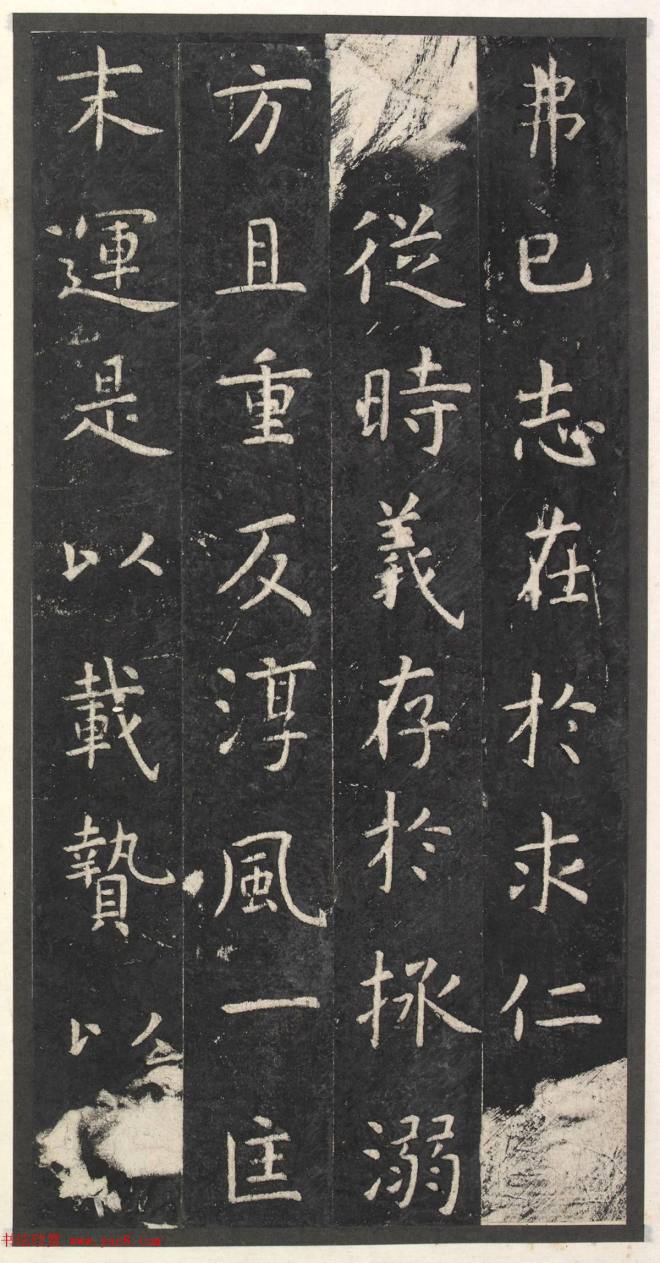 弗已志在於求仁
從時義存於拯溺
方且重反淳風一匡
末運是以載贄以